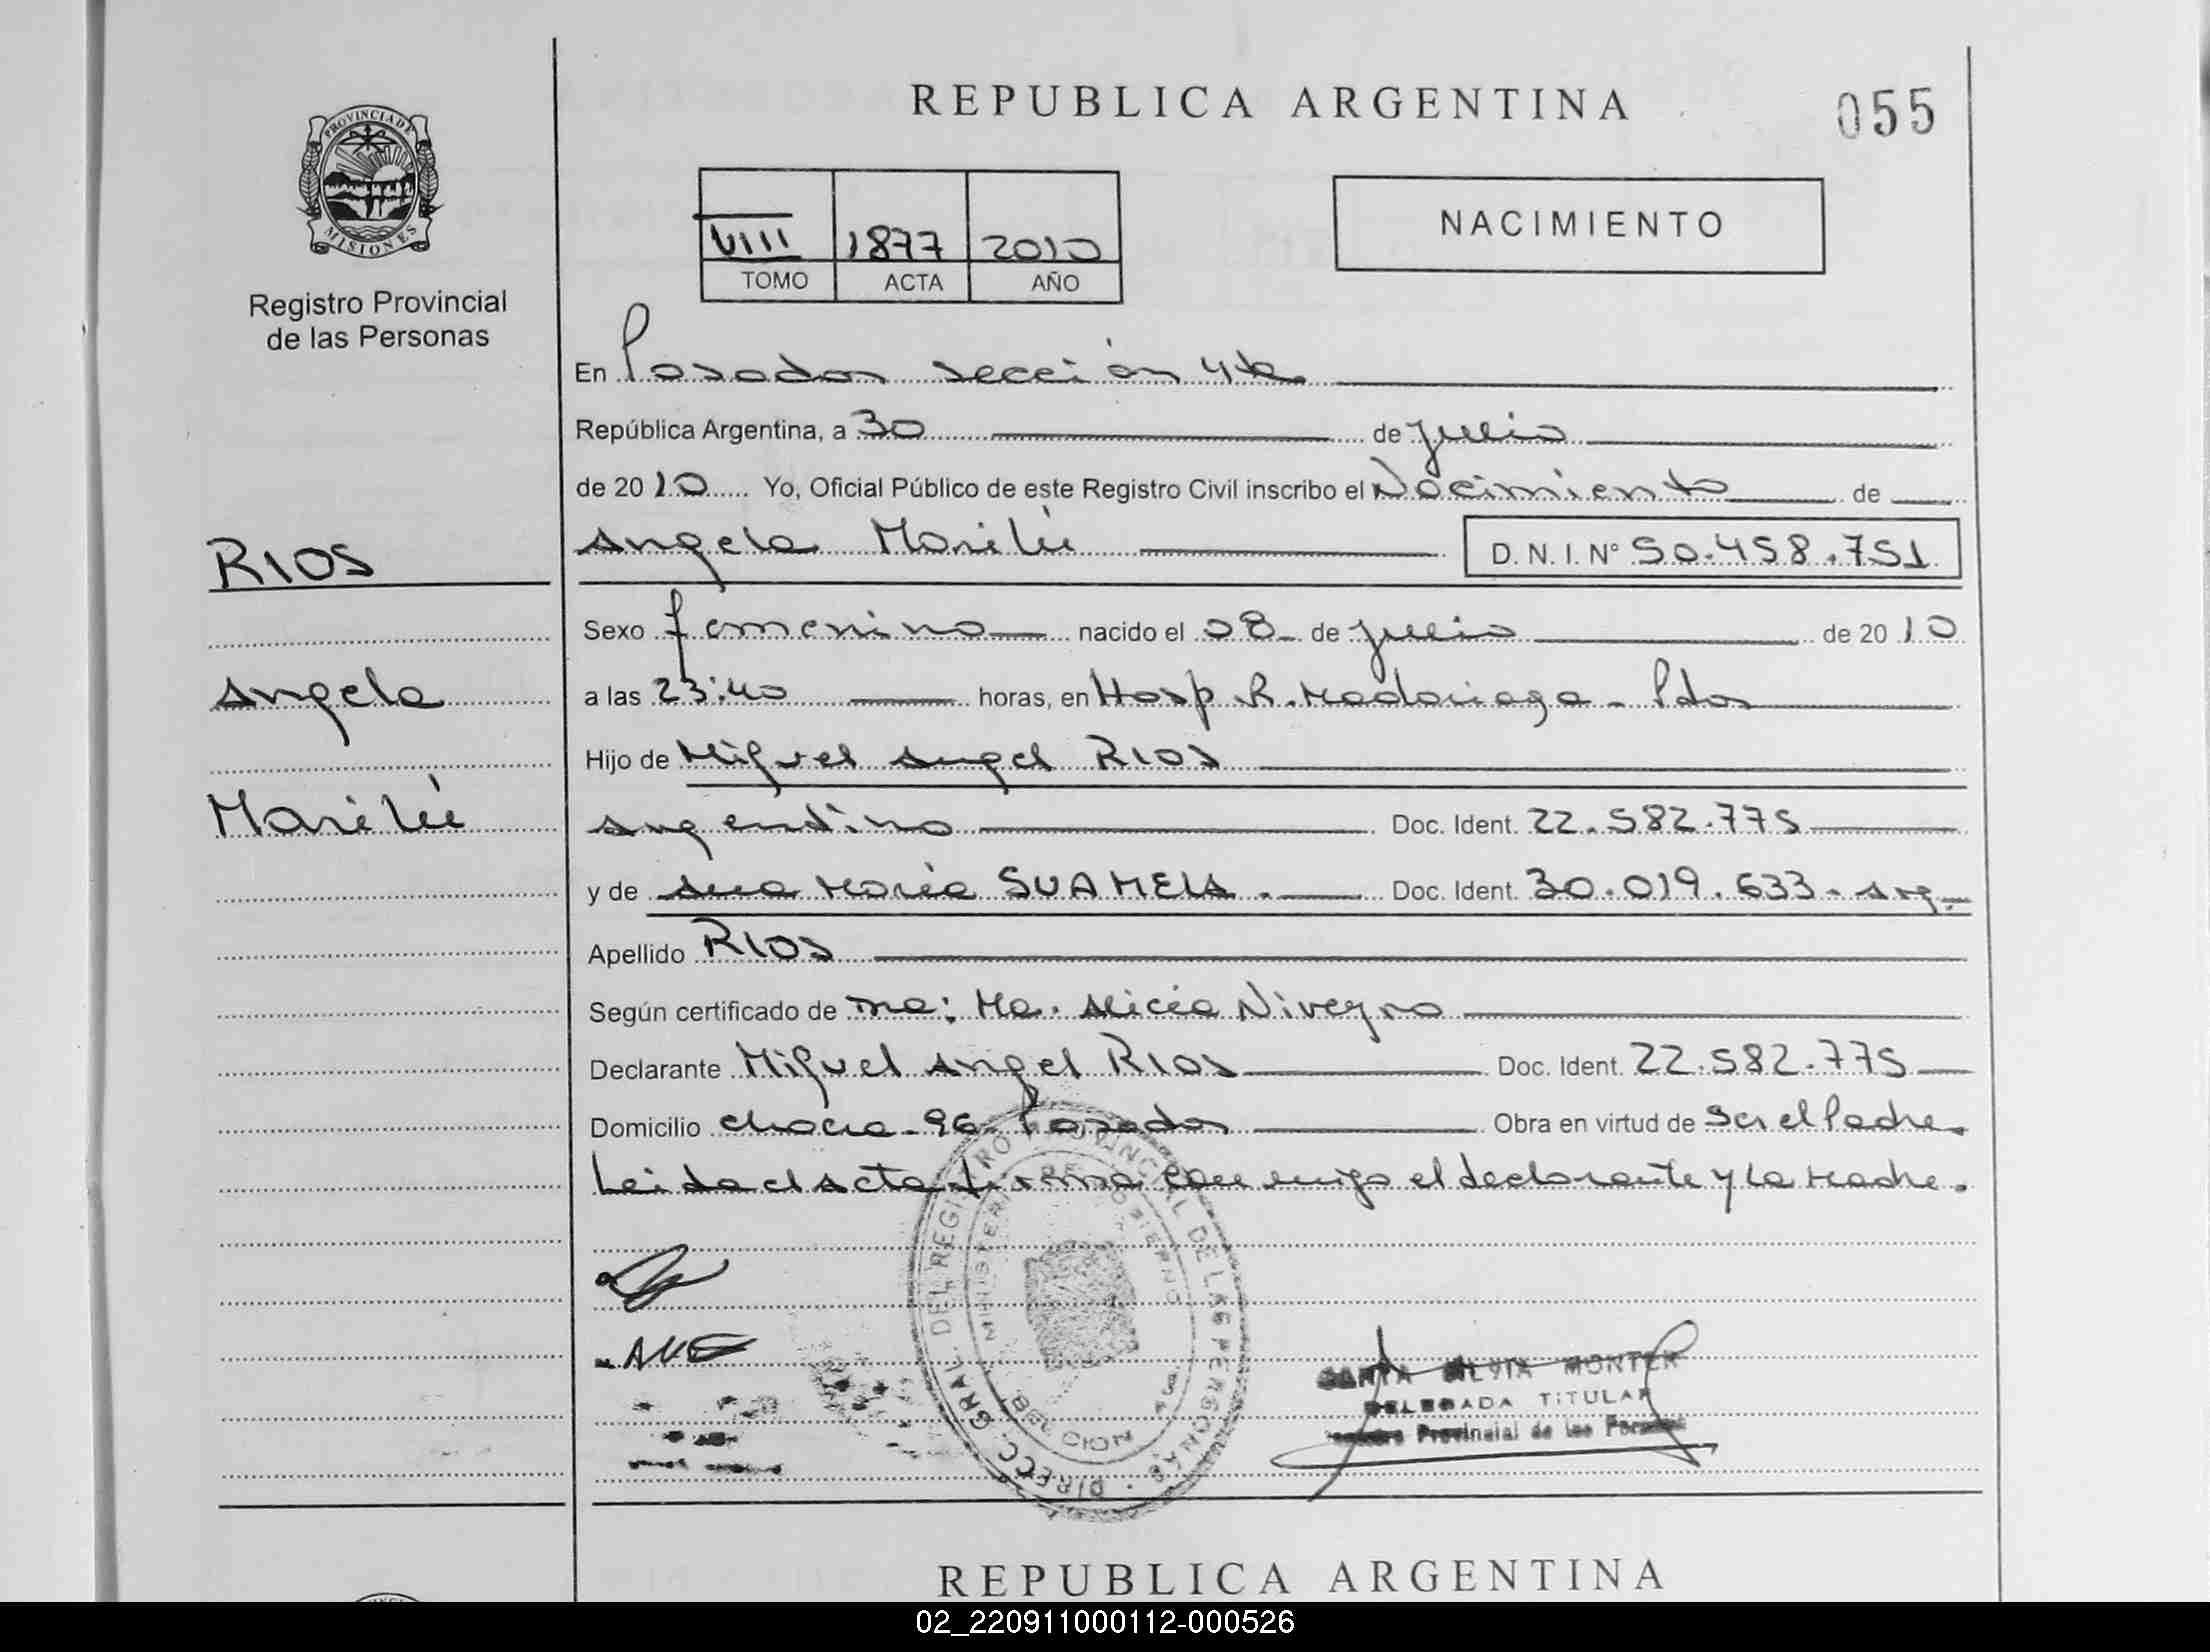 REPUBLICA ARGENTINA
055
PROVINCIA DE MISIONES
Registro Provincial
de las Personas
VIII 1877 2010
TOMO ACTA AÑO
NACIMIENTO
En Posadas sección 4ta
República Argentina, a 30 de julio
de 2010 Yo, Oficial Público de este Registro Civil inscribo el Nacimiento de
RIOS
Angela Marilú D. N. I. Nº 50.458.751
Sexo femenino nacido el 08 de julio de 2010
Angela
a las 23:40 horas, en Hosp R. Madariaga - Pdas
Hijo de Miguel Angel RIOS
Marilú
argentino Doc. Ident. 22.582.775
y de Ana María Doc. Ident. 30.019.633 - arg.
Apellido RIOS
Según certificado de Ma. Alicia
Declarante Miguel Angel RIOS Doc. Ident. 22.582.775
Domicilio chacra 96 Posadas Obra en virtud de ser el Padre.
Leida el acta firma conmigo el declarante y la Madre.
DIRECC. GRAL. DEL REGISTRO PROVINCIAL DE LAS PERSONAS
MINISTERIO DE GOBIERNO
SILVIA MONTER
DELEGADA TITULAR
Provincial de las
REPUBLICA ARGENTINA
02_220911000112-000526